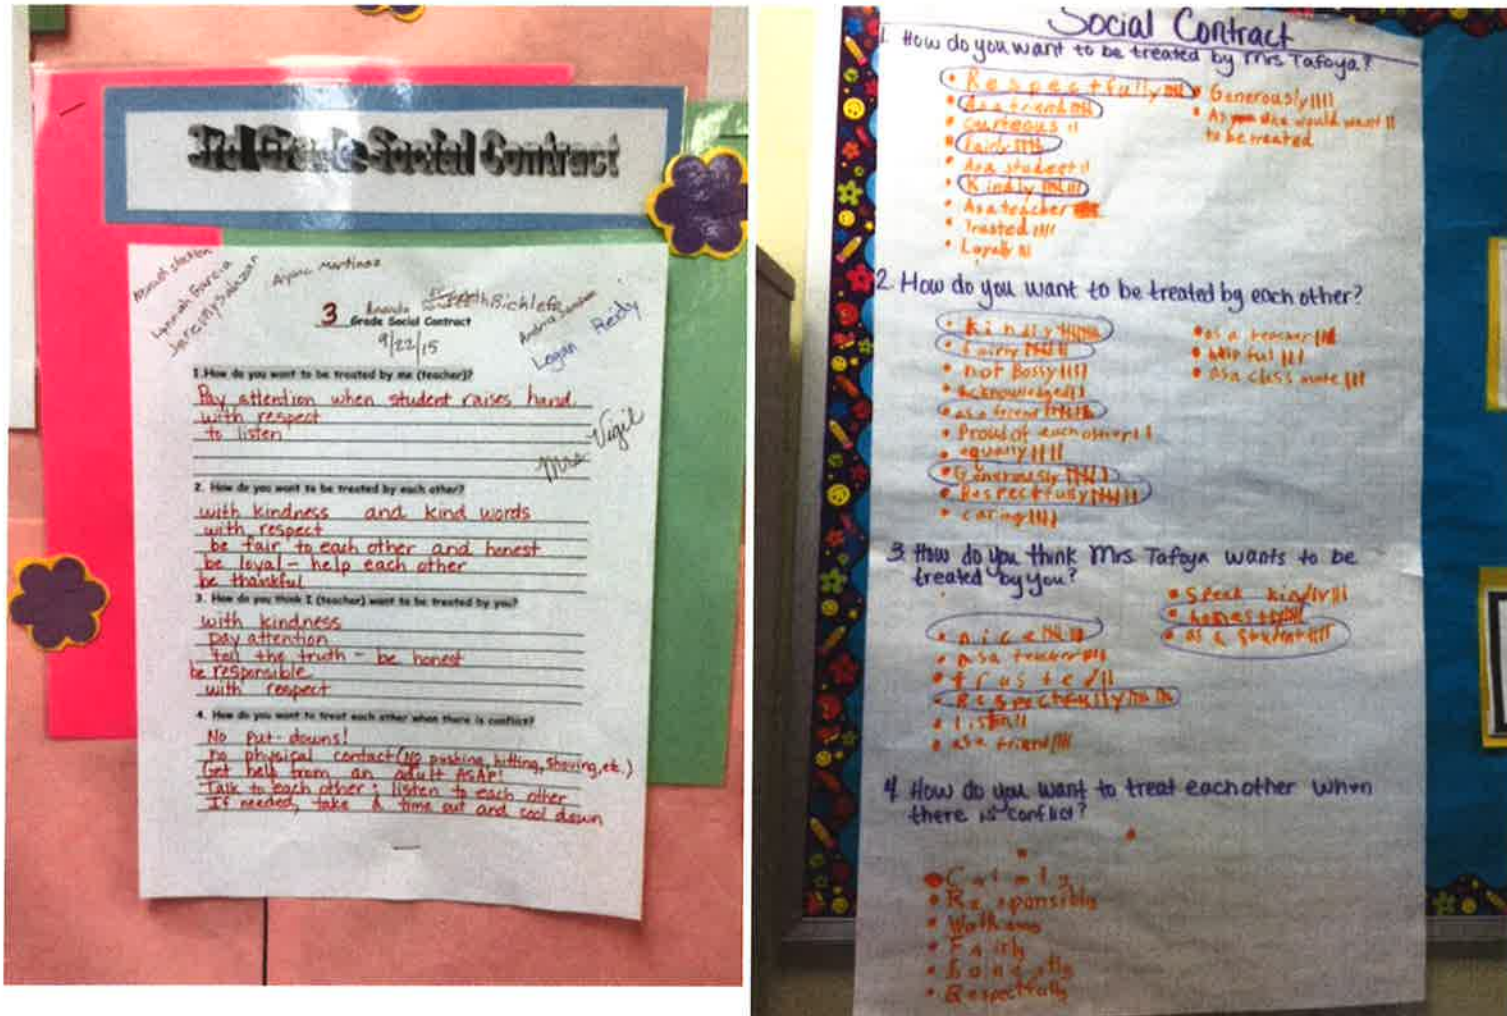 3rd Grade Social Contract
Garcia
Jeremy Salazar
Martinez
Logan Reidy
3
Grade Social Contract
9/22/15
1.How do you want to be treated by me (teacher)?
Pay attention when student raises hand
with respect
to listen
Mrs. Vigil
2. How do you want to be treated by each other?
with kindness and kind words
with respect
be fair to each other and honest
be loyal - help each other
be thankful
3. How do you think I (teacher) want to be treated by you?
with kindness
pay attention
tell the truth - be honest
be responsible
with respect
4. How do you want to treat each other when there is conflict?
No put-downs!
no physical contact (No pushing, hitting, shoving, etc.)
Get help from an adult ASAP!
Talk to each other; listen to each other
If needed, take a time out and cool down
Social Contract
1. How do you want to be treated by Mrs Tafoya?
• Respectfully
• As a friend
• Courteous
• Fairly
• As a student
• Kindly
• As a teacher
• Trusted
• Loyally
• Generously
• As she would want
to be treated
2. How do you want to be treated by each other?
• Kindly
• fairly
• not Bossy
• Acknowledged
• as a friend
• Proud of each other
• equally
• Generously
• Respectfully
• caring
• as a teacher
• helpful
• as a class mate
3. How do you think Mrs Tafoya wants to be
treated by you?
• nice
• as a teacher
• trusted
• Respectfully
• listen
• as a friend
• speak kindly
• honestly
• as a student
4. How do you want to treat each other when
there is conflict?
• Calmly
• Responsibly
• Fairly
• Respectfully